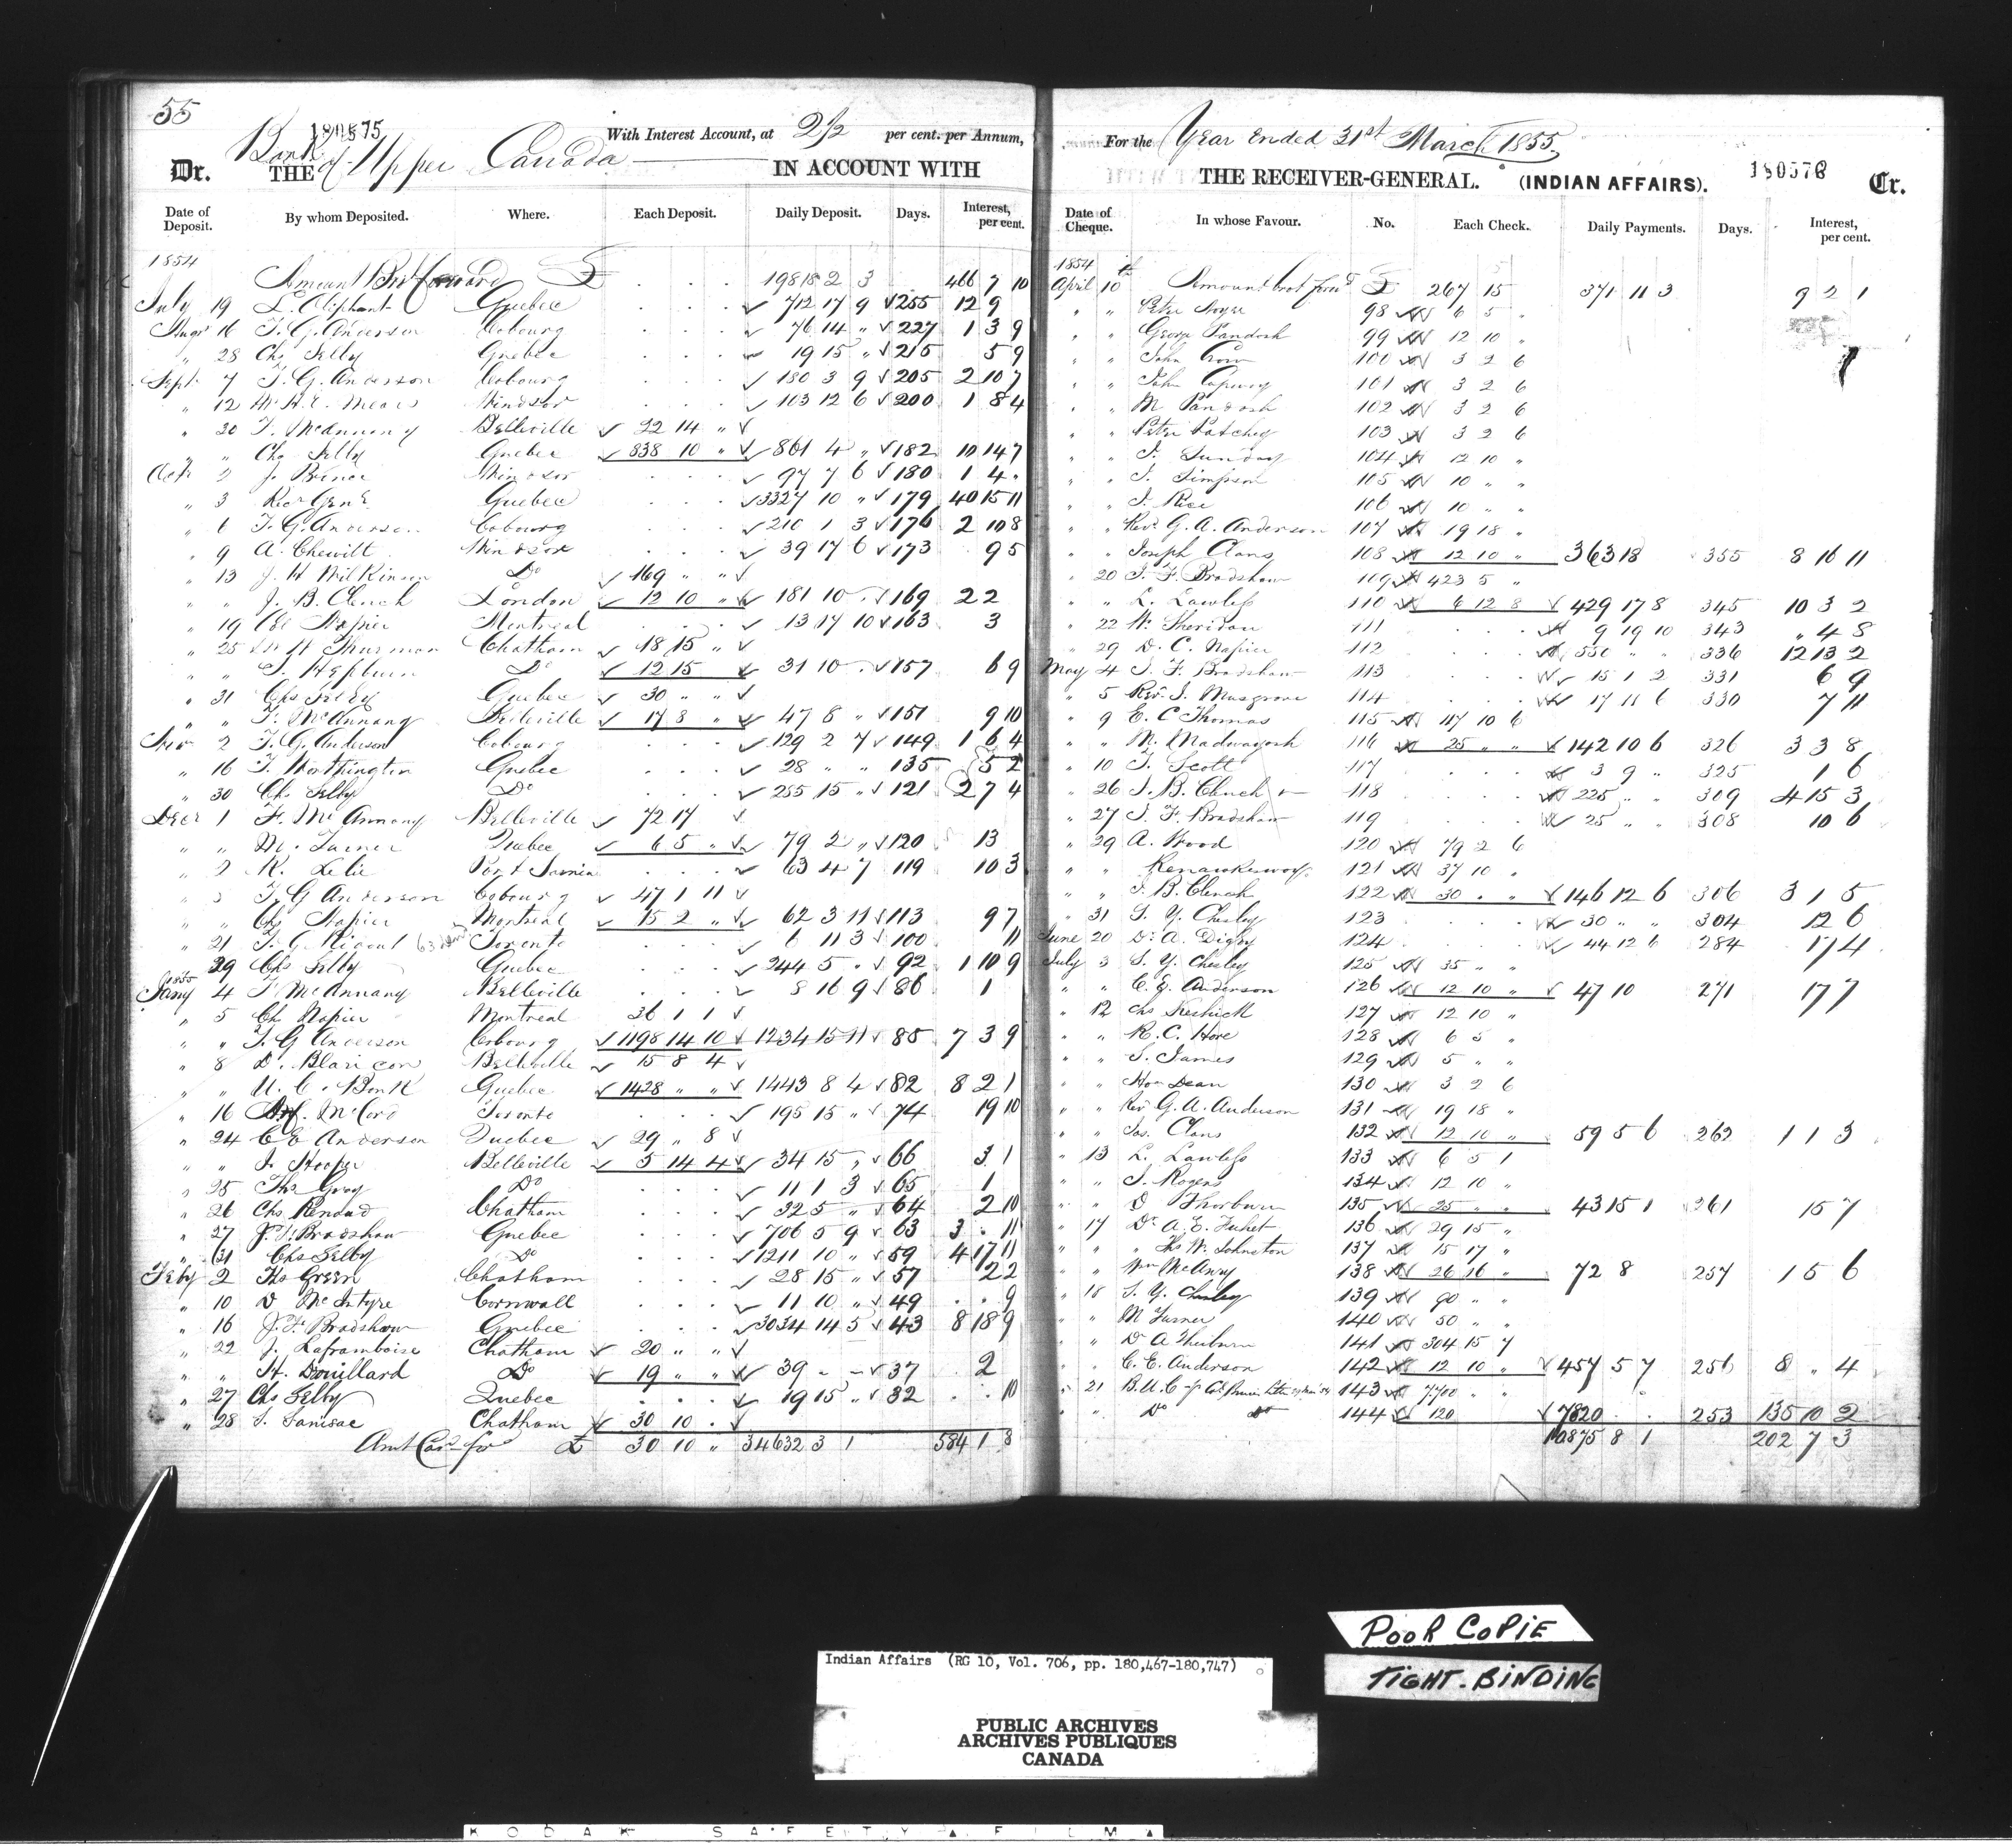 55
180575
With Interest Account, at 2 1/2 per cent. per Annum,
Dr. THE Bank of Upper Canada IN ACCOUNT WITH
Date of Deposit. By whom Deposited. Where. Each Deposit. Daily Deposit. Days. Interest, per cent.
1854
Amount Brot forward £ 19818 2 3 466 7 10
July 19 L. Oliphant Quebec 712 17 9 255 12 9
Augt 16 T. G. Anderson Cobourg 76 14 " 227 1 3 9
" 28 Chs Selby Quebec 19 15 " 215 5 9
Sept 7 T. G. Anderson Cobourg 180 3 9 205 2 10 7
" 12 Mears Windsor 103 12 6 200 1 8 4
" 30 T. McAnnany Belleville 22 14 "
" " Chs Selby Quebec 838 10 " 861 4 " 182 10 14 7
Oct 2 J. Prince Windsor 97 7 6 180 1 4 "
" 3 Recr Genl Quebec 3327 10 " 179 40 15 11
" 6 T. G. Anderson Cobourg 210 1 3 176 2 10 8
" 9 A. Chewitt Windsor 39 17 6 173 9 5
" 13 J. W Wilkinson Do 169 " "
" " J. B. Clench London 12 10 " 181 10 " 169 2 2
" 19 Col Napier Montreal 13 17 10 163 3
" 25 Thurman Chatham 18 15 "
" " J. Hepburn Do 12 15 31 10 " 157 6 9
" 31 Chs Selby Quebec 30 " "
" " T. McAnnany Belleville 17 8 " 47 8 " 151 9 10
Novr 2 T. G. Anderson Cobourg 129 2 7 149 1 6 4
" 16 T. Worthington Quebec 28 " " 135 5 2
" 30 Chs Selby Do 255 15 " 121 2 7 4
Decr 1 F. McAnnany Belleville 72 17
" " M. Turner Quebec 6 5 " 79 2 " 120 13
" 2 R. Lelie Port Sarnia 63 4 7 119 10 3
" T. G Anderson Cobourg 47 1 11
" " Chs Napier Montreal 15 2 " 62 3 11 113 9 7
" 21 T. G. Ridout Toronto 6 11 3 100 11
29 Chs Selby Quebec 244 5 " 92 1 10 9
1855
Jany 4 F. McAnnany Belleville 8 16 9 86 1
" 5 Ch Napier Montreal 36 1 1
" " T. G Anderson Cobourg 1198 14 10 1234 15 11 85 7 3 9
" 8 D. Blaricom Belleville 15 8 4
" " U. C. Bank Quebec 1428 " " 1443 8 4 82 8 2 1
" 16 McCord Toronto 195 15 " 74 19 10
" 24 C E Anderson Quebec 29 " 8
" " J. Hooper Belleville 5 14 4 34 15 " 66 3 1
" 25 Ths Gray Do 11 1 3 65 1
" 26 Chs Rendad Chatham 32 5 " 64 2 10
" 27 J. F. Bradshaw Quebec 706 5 9 63 3 " 11
" 31 Chs Selby Do 1211 10 " 59 4 17 11
Feby 2 Ths Green Chatham 28 15 " 57 2 2
" 10 D McIntyre Cornwall 11 10 " 49 9
" 16 J. F. Bradshaw Quebec 3034 14 5 43 8 18 9
" 22 J. Laframboise Chatham 20 " "
" " H. Drouillard Do 19 " " 39 " " 37 2
" 27 Chs Selby Quebec 19 15 " 32 10
" 28 Chatham 30 10 "
Amt Card for £ 30 10 " 34632 3 1 584 1 8
For the Year ended 31st March 1855.
THE RECEIVER-GENERAL. (INDIAN AFFAIRS). 180576 Cr.
Date of Cheque. In whose Favour. No. Each Check. Daily Payments. Days. Interest, per cent.
1854
April 10th Amount brot forwd £ 267 15 371 11 3 9 2 1
" " Peter Noyer 98 6 5 "
" " George Pandosh 99 12 10 "
" " John Crow 100 3 2 6
" " John Copway 101 3 2 6
" " M Pandosh 102 3 2 6
" " Peter Patchey 103 3 2 6
" " J. Sunday 104 12 10 "
" " J. Simpson 105 10 " "
" " J. Rice 106 10 " "
" " Revd G. A. Anderson 107 19 18 "
" " Joseph Clans 108 12 10 " 363 18 355 8 16 11
" 20 J. F. Bradshaw 109 423 5 "
" " L. Lawless 110 6 12 8 429 17 8 345 10 3 2
" 22 W. Sheridan 111 9 19 10 343 " 4 8
" 29 D. C. Napier 112 550 " " 336 12 13 2
May 4 J. F. Bradshaw 113 15 1 2 331 6 9
" 5 Revd J. Musgrove 114 17 11 6 330 7 11
" 9 E. C Thomas 115 117 10 6
" " M. Madwayosh 116 25 " " 142 10 6 326 3 3 8
" 10 J. Scott 117 3 9 " 325 1 6
" 26 J. B. Clench 118 225 " " 309 4 15 3
" 27 J. F. Bradshaw 119 25 " " 308 10 6
" 29 A. Wood 120 79 2 6
" " 121 37 10 "
" " J. B. Clench 122 30 " " 146 12 6 306 3 1 5
" 31 S. Y. Chesley 123 30 " " 304 12 6
June 20 Dr A. Digby 124 44 12 6 284 17 4
July 3 S. Y. Chesley 125 35 " "
" " C. E. Anderson 126 12 10 " 47 10 271 17 7
" 12 Chs Keshick 127 12 10 "
" " R. C. Hore 128 6 5 "
" " S. James 129 5 " "
" " Dean 130 3 2 6
" " Rev G. A. Anderson 131 19 18 "
" " Jos. Clans 132 12 10 " 59 5 6 262 1 1 3
" 13 L. Lawless 133 6 5 1
" " J. Rogers 134 12 10 "
" " D Thorburn 135 25 " " 43 15 1 261 15 7
" 17 Dr A. E. 136 29 15 "
" " " Ths W. Johnston 137 15 17 "
" " Wm McAnry 138 26 16 " 72 8 257 1 5 6
" 18 S. Y. Chesley 139 90 " "
" " M Turner 140 50 " "
" " Dr A 141 304 15 7
" " C. E. Anderson 142 12 10 " 457 5 7 256 8 " 4
" 21 B. U. C 143 7700 " "
" " Do Do 144 120 7820 " " 253 135 10 2
10875 8 1 202 7 3
POOR COPIE
TIGHT-BINDING
Indian Affairs (RG 10, Vol. 706, pp. 180,467-180,747)
PUBLIC ARCHIVES
ARCHIVES PUBLIQUES
CANADA
KODAK SAFETY FILM